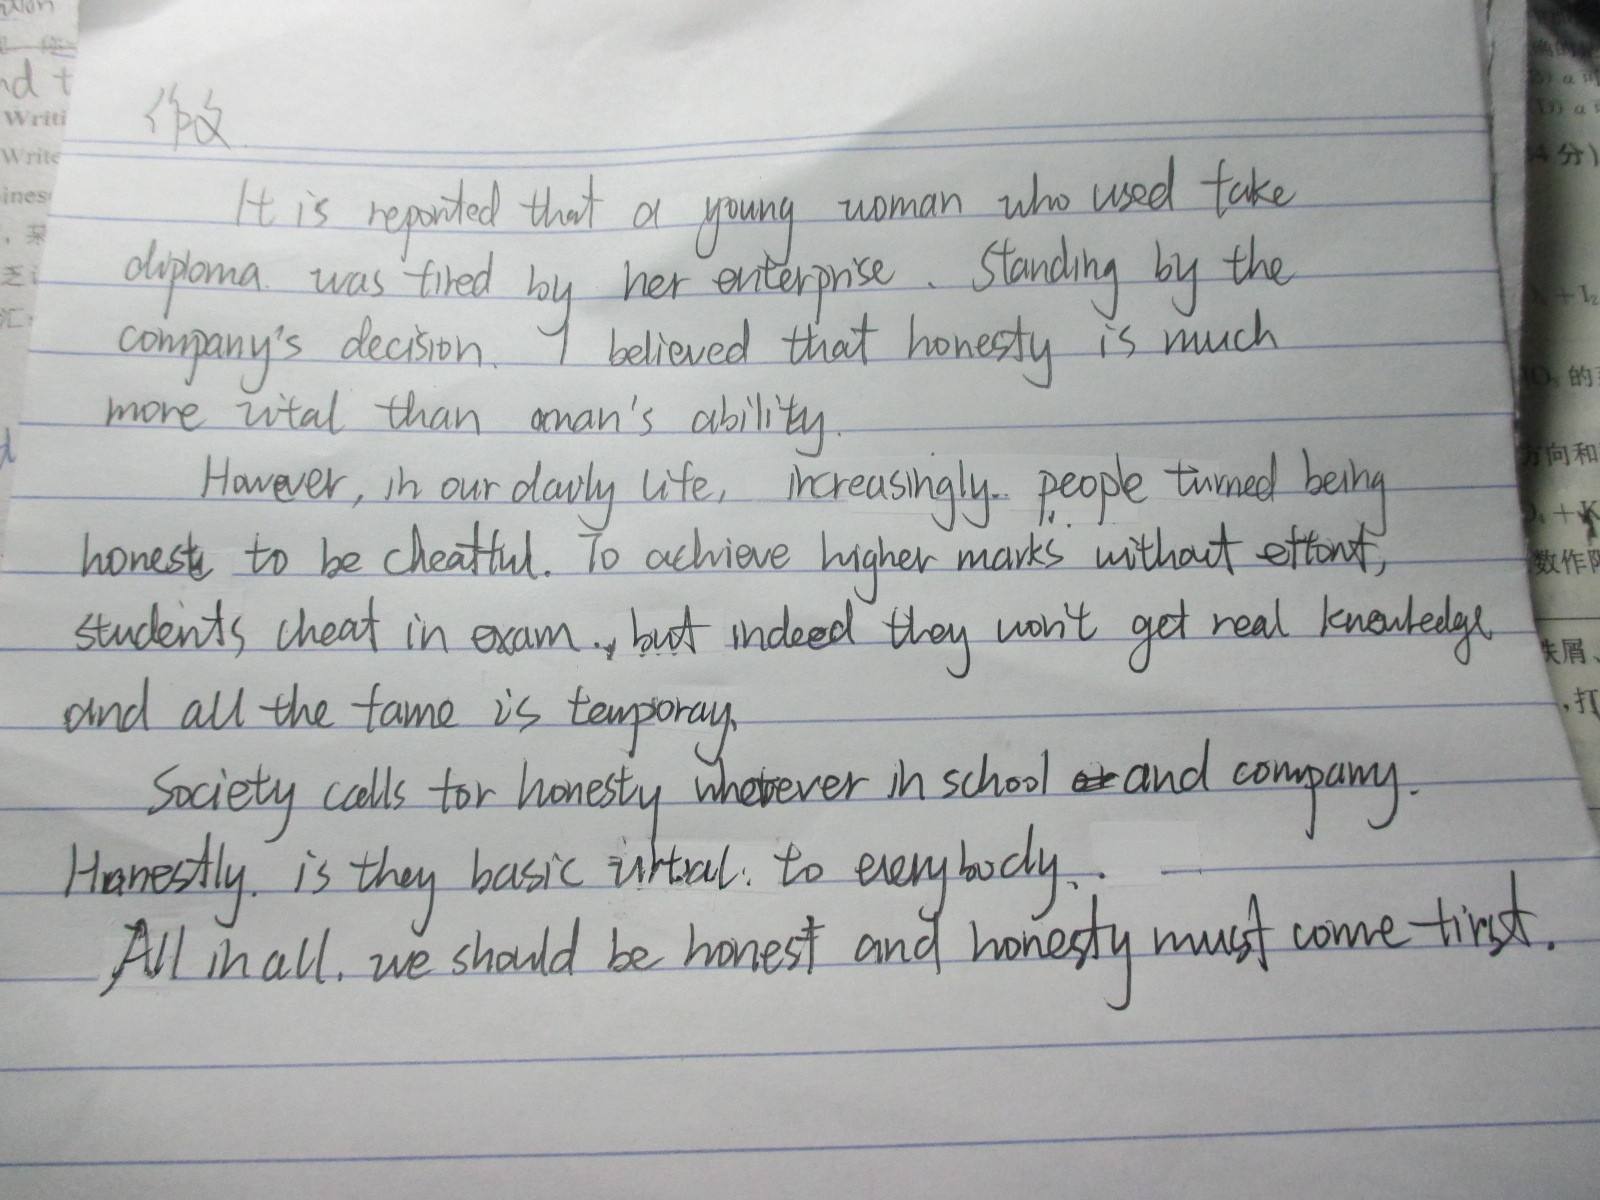 作文
It is reported that a young woman who used take
diploma. was fired by her enterprise. Standing by the
company's decision. I believed that honesty is much
more vital than aman's ability.
However, in our daily life, increasingly.. people turned being
honest to be cheatful. To achieve higher marks without effort,
students cheat in exam., but indeed they won't get real knowledge
and all the fame is temporay.
Society calls for honesty wherever in school and company.
Honestly. is they basic to everybody..
All in all. we should be honest and honesty must come first.
Writi
Write
4分)
的
方向和
数作
铁屑、
,打